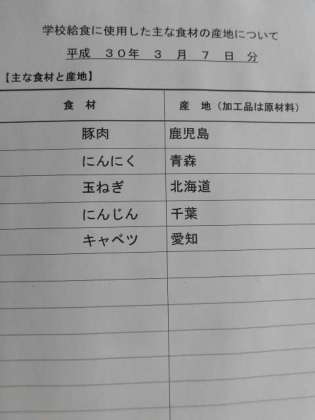 学校給食に使用した主な食材の産地について
平成 30年 3 月 7 日 分
【主な食材と産地】
食 材 産 地（加工品は原材料）
豚肉 鹿児島
にんにく 青森
玉ねぎ 北海道
にんじん 千葉
キャベツ 愛知